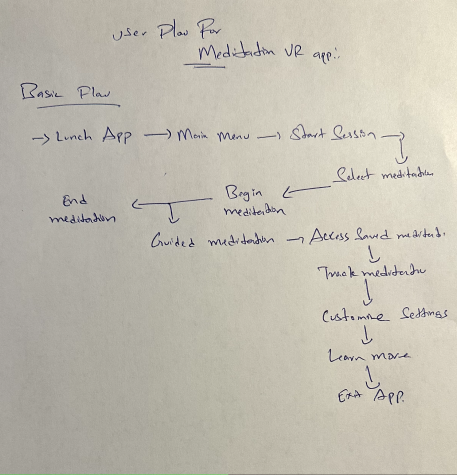 User Flow For
Meditation VR app:
Basic Flow
→ Lunch App → Main Menu → Start Session →
Select meditation
Begin
meditation
End
meditation
Guided meditation → Access Saved meditati.
Track meditation
Custome Settings
Learn more
Exit App.